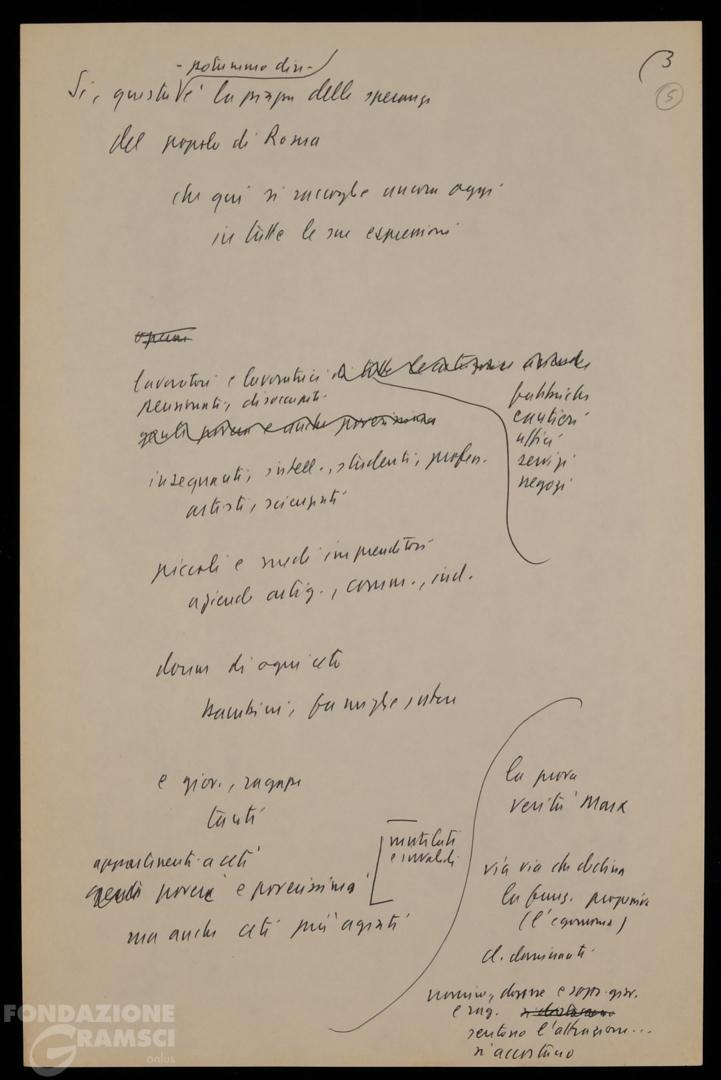 3
5
- potremmo dire -
Sì, questa è la piazza delle speranze
del popolo di Roma
che qui si raccoglie ancora oggi
in tutte le sue espressioni
operai
lavoratori e lavoratrici di tutte le categorie
pensionati, disoccupati
fabbriche
cantieri
uffici
servizi
negozi
genti povera e anche poverissima
insegnanti, intell., studenti, profess.
artisti, scienziati
piccoli e medi imprenditori
aziende artig., comm., ind.
donne di ogni ceto
bambini, famiglie intere
e giov., ragazze
tanti
appartenenti a ceti
poveri e poverissimi
mutilati
e invalidi
ma anche ceti più agiati
la prova
verità Marx
via via che declina
la funz. propulsiva
(l'egemonia)
cl. dominanti
uomini, donne e sopr. giov.
e rag.
sentono l'attrazione...
si accostano
FONDAZIONE
GRAMSCI
onlus